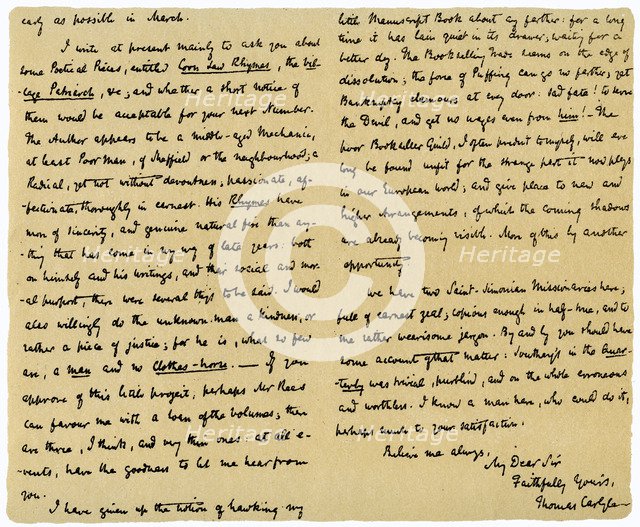 early as possible in March.
I write at present mainly to ask you about
some Poetical Pieces, entitled Corn Law Rhymes, the Vil-
-lage Patriarch, &c; and whether a short notice of
them would be acceptable for your next Number.
The Author appears to be a middle-aged Mechanic,
at least Poor Man, of Sheffield or the neighbourhood; a
Radical, yet not without devoutness; passionate, af-
-fectionate, thoroughly in earnest. His Rhymes have
more of sincerity, and genuine natural fire than any-
-thing that has come in my way of late years: both
on himself and his writings, and their social and mor-
-al purport, there were several things to be said. I would
also willingly do the unknown man a kindness, or
rather a piece of justice; for he is, what so few
are, a man and no Clothes-horse. — If you
approve of this little project, perhaps Mr Rees
can favour me with a loan of the volumes; there
are three, I think, and very thin ones: at all e-
-vents, have the goodness to let me hear from
you.
I have given up the notion of hawking my
little Manuscript Book about any farther: for a long
time it has lain quiet in its drawer, waiting for a
better day. The Bookselling Trade seems on the edge of
dissolution; the force of Puffing can go no farther, yet
Bankruptcy clamours at every door: sad fate! to serve
the Devil, and get no wages even from him! — The
poor Bookseller Guild, I often predict to myself, will ere
long be found unfit for the strange part it now plays
in our European world; and give place to new and
higher arrangements, of which the coming shadows
are already becoming visible. More of this by another
opportunity.
We have two Saint-Simonian Missionaries here;
full of earnest zeal; copious enough in half-true, and to
me rather wearisome jargon. By and by you should have
some account of that matter: Southey's in the Quar-
-terly was trivial, purblind, and on the whole erroneous
and worthless. I know a man here, who could do it,
perhaps much to your satisfaction.
Believe me always,
My Dear Sir
Faithfully Yours,
Thomas Carlyle
Heritage
Heritage
Heritage
Heritage
Heritage
Heritage
©